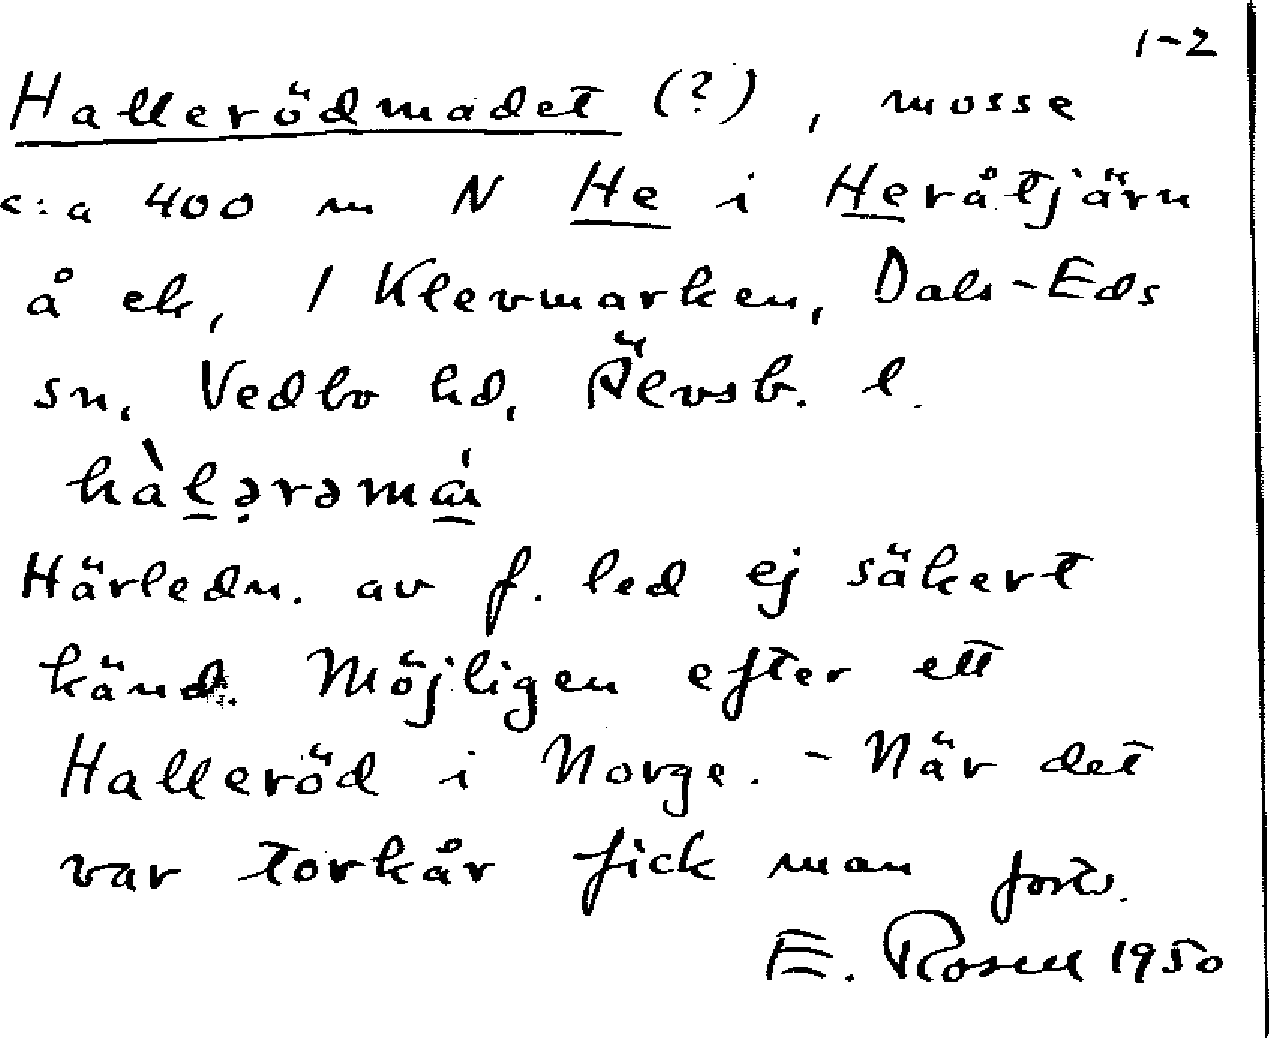 1-2
Hallerödmadet (?), mosse
c:a 400 m N He i Heråtjärn
å ek, / Klevmarken, Dals-Eds
sn, Vedbo hd, Älvsb. l.
Härledn. av f. led ej säkert
känd. Möjligen efter ett
Halleröd i Norge. - När det
var torkår fick man forts.
E. Rosell 1950